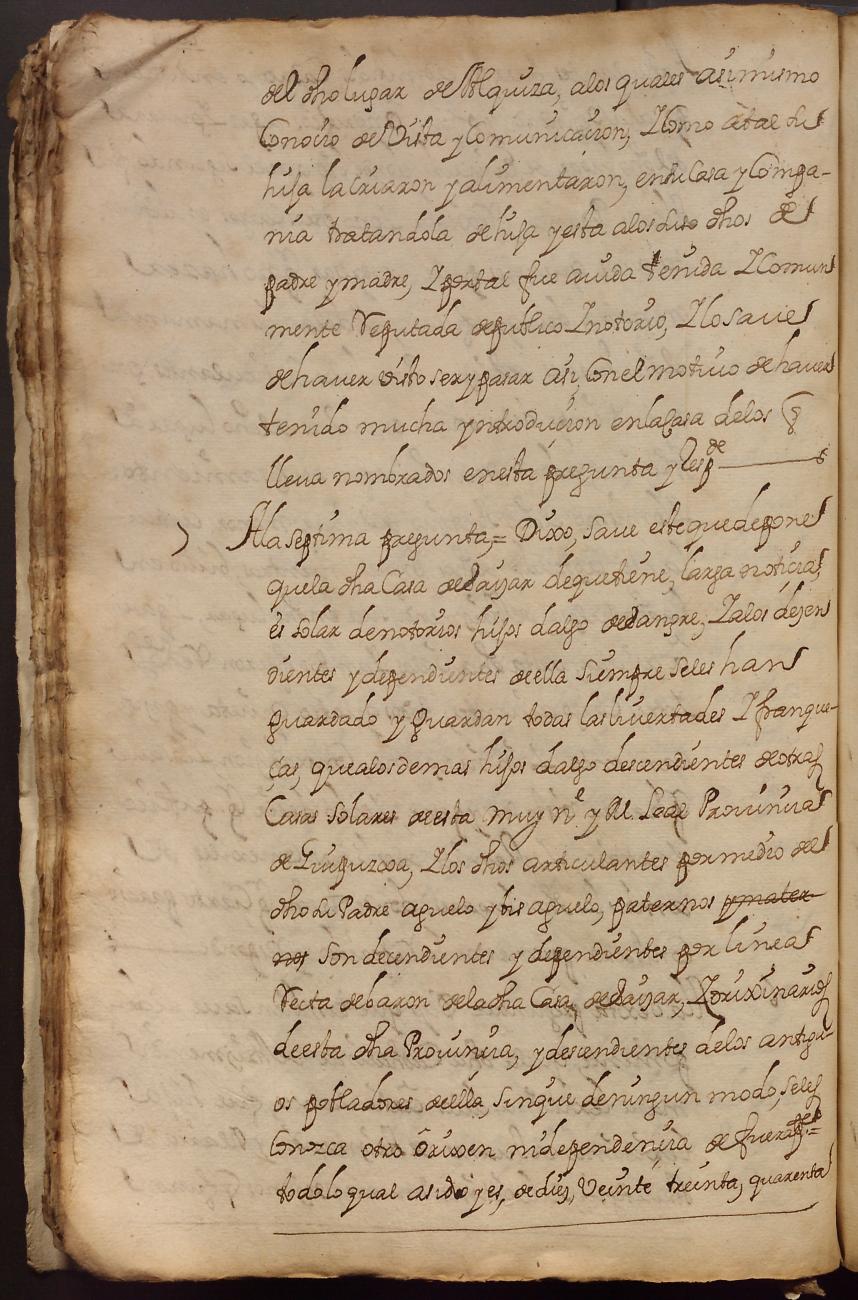 del dho lugar de Alquiza, alos quales asimismo
Conocio de Vista y Comunicacion, Y Como atal su
hija la criaron y alimentaron, en su Casa y Compa-
nia tratandola de hija y esta alos suso dhos de
padre y madre, Y por tal fue auida tenida Y Comun
mente Reputada de publico Y notorio, Y lo saue
de hauer visto ser y pasar asi, Con el motiuo de hauer
tenido mucha yntroducion en la Casa de los q
lleva nombrados en esta pregunta y Resp.de
7 A la septima pregunta,= Dixo, Saue este que depone
que la dha Casa de Saijar de que tiene, larga noticia,
es solar de notorios hijos dalgo de Sangre, Y a los desen
dientes y dependientes de ella siempre seles han
guardado y Guardan todas las liuertades Y franque-
ças, que alos demas hijos dalgo descendientes de otras
Casas Solares de esta muy n.e y M. Leal Prouincia
de Guipuzcoa, Y los dhos articulantes por medio del
dho su Padre aguelo y bis aguelo, paternos y mater
nos son decendientes y dependientes por linea
Recta de baron de la dha Casa, de Saijar, Y orixinarios
de esta dha Prouincia, y descendientes de los antigu-
os pobladores de ella, sin que de ningun modo, seles
Conozca otro Orixen ni dependencia de fuera
todo lo qual asido y es, de diez, Veinte treinta, quarenta